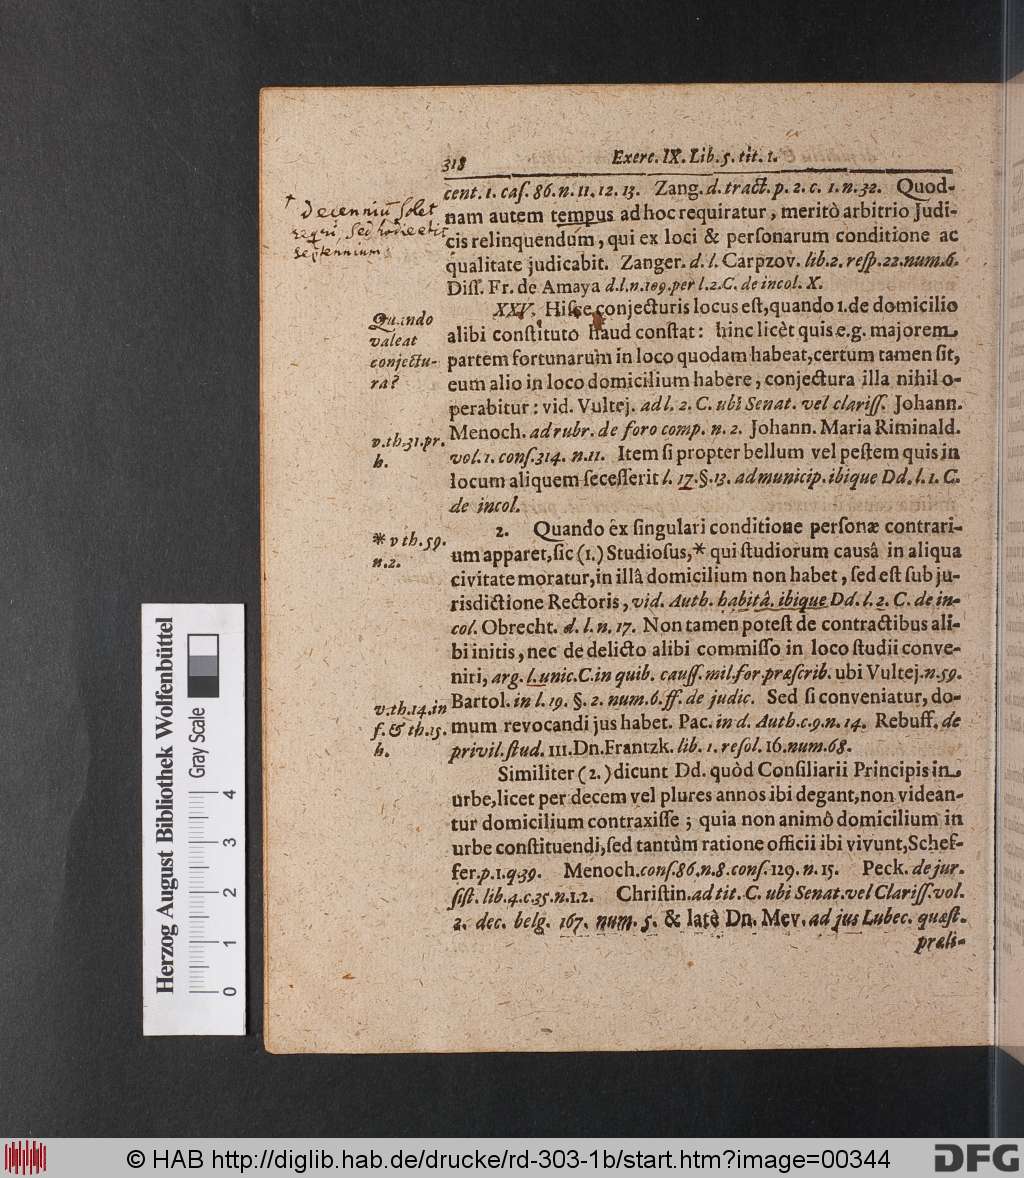 318 Exerc. IX. Lib. 5. tit. 1.
cent. 1. caſ. 86. n. 11. 12. 13. Zang. d. tract. p. 2. c. 1. n. 32. Quod-
nam autem tempus ad hoc requiratur, meritò arbitrio Judi-
cis relinquendum, qui ex loci & perſonarum conditione ac
qualitate judicabit. Zanger. d. l. Carpzov. lib. 2. reſp. 22. num. 6.
Diſſ. Fr. de Amaya d. l. n. 109. per l. 2. C. de incol. X.
† Decenniū ſolet
reqri, ſed hodie etiā
septennium
XXV. Hiſce conjecturis locus eſt, quando 1. de domicilio
alibi conſtituto haud conſtat: hinc licèt quis e.g. majorem
partem fortunarum in loco quodam habeat, certum tamen ſit,
eum alio in loco domicilium habere, conjectura illa nihil o-
perabitur: vid. Vultej. ad l. 2. C. ubi Senat. vel clariſſ. Johann.
Menoch. ad rubr. de foro comp. n. 2. Johann. Maria Riminald.
vol. 1. conſ. 314. n. 11. Item ſi propter bellum vel peſtem quis in
locum aliquem ſeceſſerit l. 17. §. 13. ad municip. ibique Dd. l. 1. C.
de incol.
Quando
valeat
conjectu-
ra?
v. th. 31. pr.
h.
2. Quando ex ſingulari conditione perſonæ contrari-
um apparet, ſic (1.) Studioſus, * qui ſtudiorum causâ in aliqua
civitate moratur, in illâ domicilium non habet, ſed eſt ſub ju-
risdictione Rectoris, vid. Auth. habitâ. ibique Dd. l. 2. C. de in-
col. Obrecht. d. l. n. 17. Non tamen poteſt de contractibus ali-
bi initis, nec de delicto alibi commiſſo in loco ſtudii conve-
niri, arg. l. unic. C. in quib. cauſſ. mil. for. præſcrib. ubi Vultej. n. 59.
Bartol. in l. 19. §. 2. num. 6. ff. de judic. Sed ſi conveniatur, do-
mum revocandi jus habet. Pac. in d. Auth. c. 9. n. 14. Rebuff. de
privil. ſtud. 111. Dn. Frantzk. lib. 1. reſol. 16. num. 68.
* v th. 59.
n. 2.
v. th. 14. in
f. & th. 15.
h.
Similiter (2.) dicunt Dd. quòd Conſiliarii Principis in
urbe, licet per decem vel plures annos ibi degant, non videan-
tur domicilium contraxiſſe; quia non animô domicilium in
urbe conſtituendi, ſed tantùm ratione officii ibi vivunt, Schef-
fer. p. 1. q. 39. Menoch. conſ. 86. n. 8. conſ. 129. n. 15. Peck. de jur.
ſiſt. lib. 4. c. 35. n. 1. 2. Chriſtin. ad tit. C. ubi Senat. vel Clariſſ. vol.
2. dec. belg. 167. num. 5. & latè Dn. Mev. ad jus Lubec. quæſt.
præli-
Herzog August Bibliothek Wolfenbüttel
Gray Scale
0 1 2 3 4
© HAB http://diglib.hab.de/drucke/rd-303-1b/start.htm?image=00344
DFG